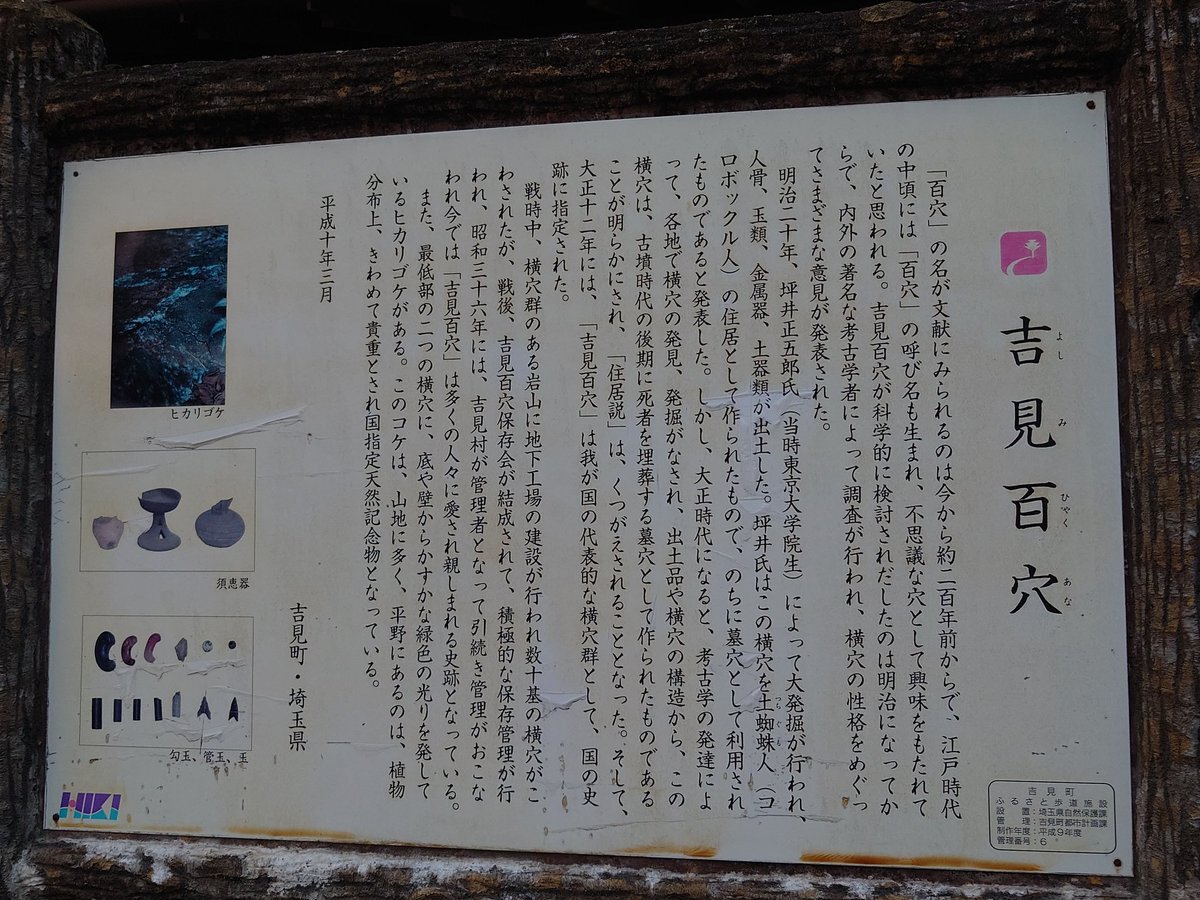 吉見百穴
よしみひゃくあな
「百穴」の名が文献にみられるのは今から約二百年前からで、江戸時代
の中頃には「百穴」の呼び名も生まれ、不思議な穴として興味をもたれて
いたと思われる。吉見百穴が科学的に検討されだしたのは明治になってか
らで、内外の著名な考古学者によって調査が行われ、横穴の性格をめぐっ
てさまざまな意見が発表された。
明治二十年、坪井正五郎氏（当時東京大学院生）によって大発掘が行われ、
人骨、玉類、金属器、土器類が出土した。坪井氏はこの横穴を土蜘蛛人（コ
つちぐも
ロボックル人）の住居として作られたもので、のちに墓穴として利用され
たものであると発表した。しかし、大正時代になると、考古学の発達によ
って、各地で横穴の発見、発掘がなされ、出土品や横穴の構造から、この
横穴は、古墳時代の後期に死者を埋葬する墓穴として作られたものである
ことが明らかにされ、「住居説」は、くつがえされることとなった。そして、
大正十二年には、「吉見百穴」は我が国の代表的な横穴群として、国の史
跡に指定された。
戦時中、横穴群のある岩山に地下工場の建設が行われ数十基の横穴がこ
わされたが、戦後、吉見百穴保存会が結成されて、積極的な保存管理が行
われ、昭和三十六年には、吉見村が管理者となって引続き管理がおこな
われ今では「吉見百穴」は多くの人々に愛され親しまれる史跡となっている。
また、最低部の二つの横穴に、底や壁からかすかな緑色の光りを発して
いるヒカリゴケがある。このコケは、山地に多く、平野にあるのは、植物
分布上、きわめて貴重とされ国指定天然記念物となっている。
平成十年三月
吉見町・埼玉県
ヒカリゴケ
須恵器
勾玉、管玉、玉
HIKI
吉見町
ふるさと歩道施設
設置：埼玉県自然保護課
管理：吉見町都市計画課
制作年度：平成9年度
管理番号：6